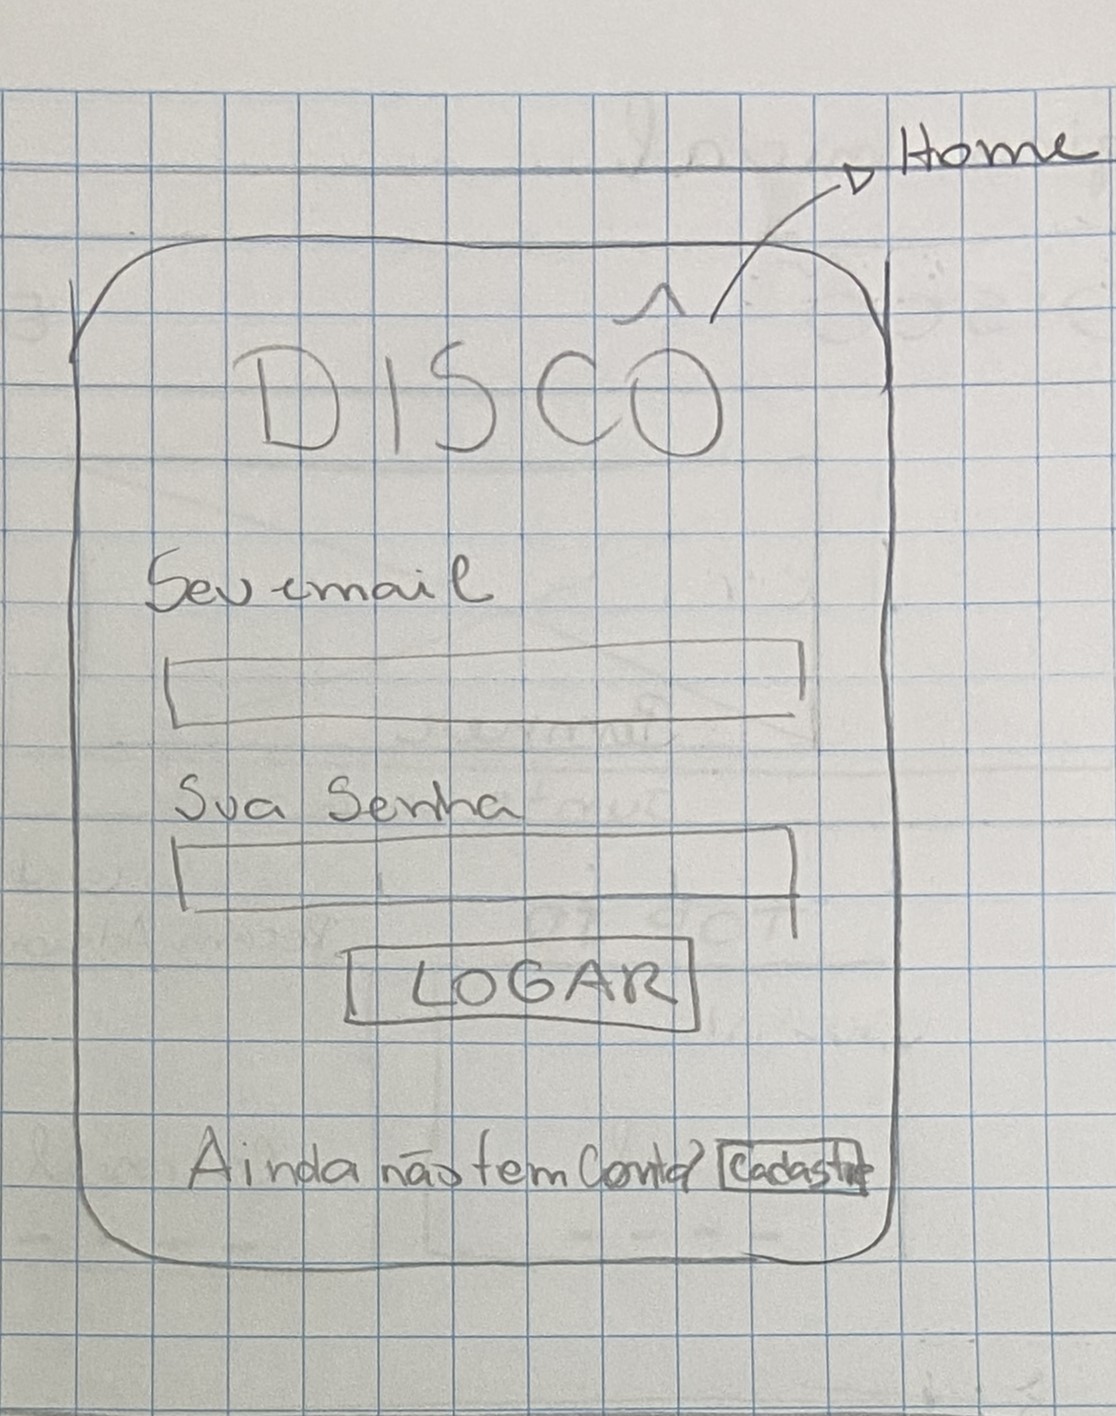 Home
DISCÔ
Seu email
Sua Senha
LOGAR
Ainda não tem Conta? Cadastre